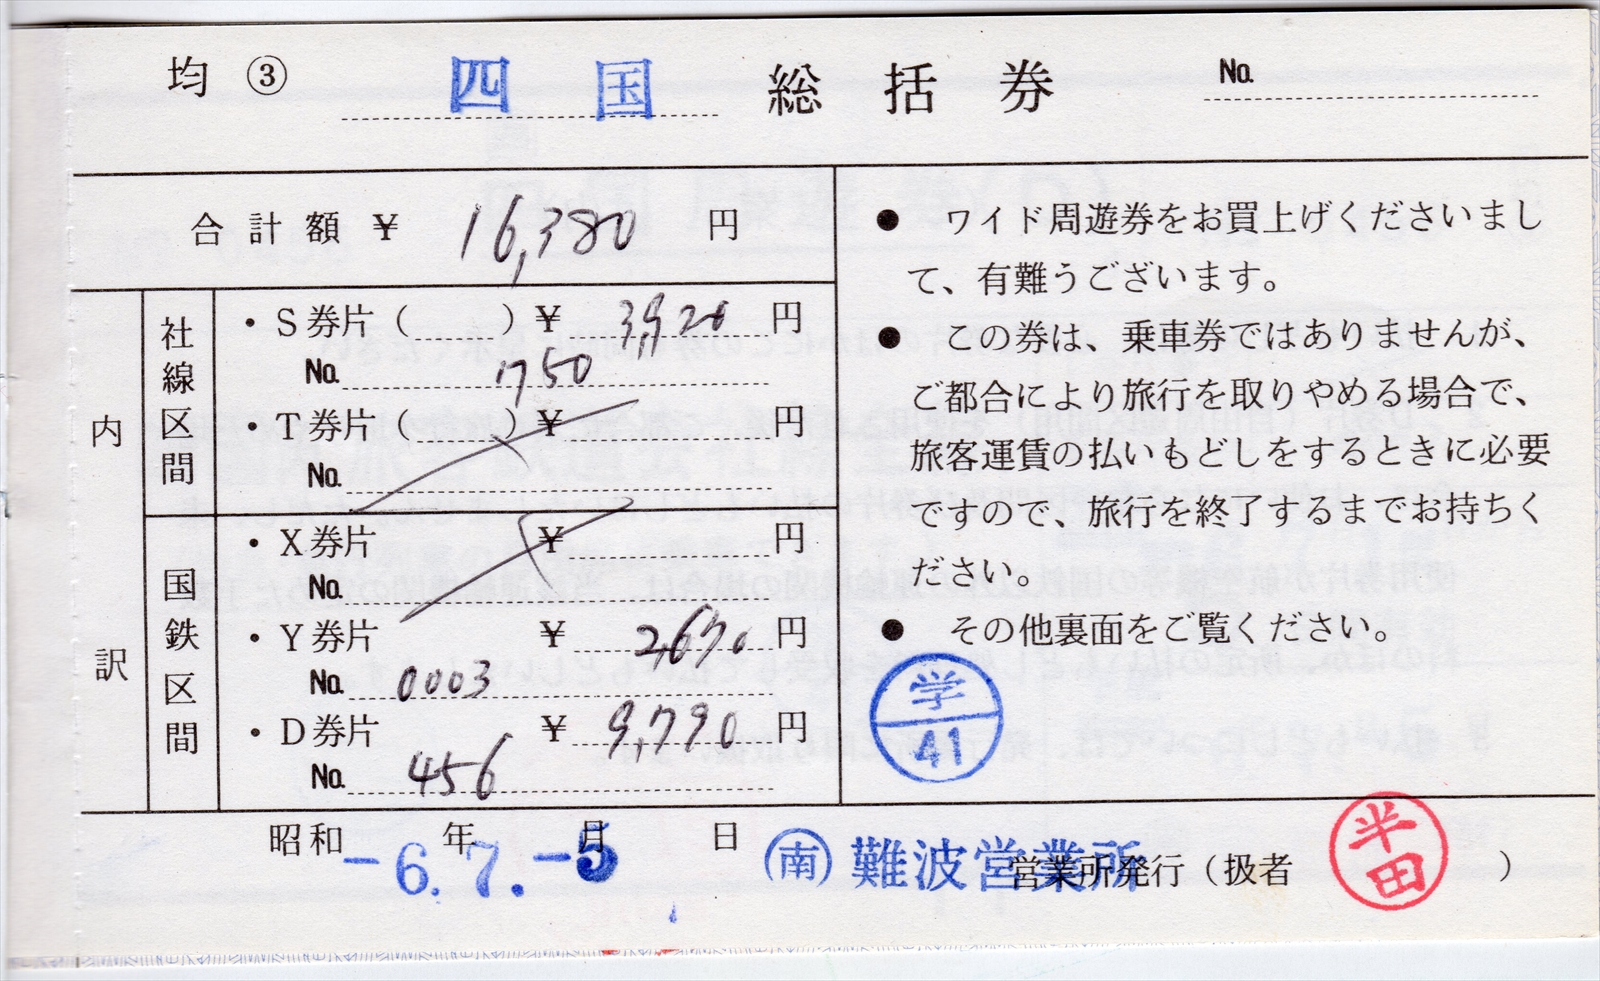 均 ③ 四国 総括券 No.
合計額 ¥ 16,380 円
内訳
社線区間
・S券片( ) ¥ 3,920 円
No. 1750
・T券片( ) ¥ 円
No.
国鉄区間
・X券片 ¥ 円
No.
・Y券片 ¥ 2,670 円
No. 0003
・D券片 ¥ 9,790 円
No. 456
● ワイド周遊券をお買上げくださいまし
て、有難うございます。
● この券は、乗車券ではありませんが、
ご都合により旅行を取りやめる場合で、
旅客運賃の払いもどしをするときに必要
ですので、旅行を終了するまでお持ちく
ださい。
● その他裏面をご覧ください。
学
41
昭和 年 月 日
-6.7.-5
南 難波営業所
営業所発行(扱者 半田 )